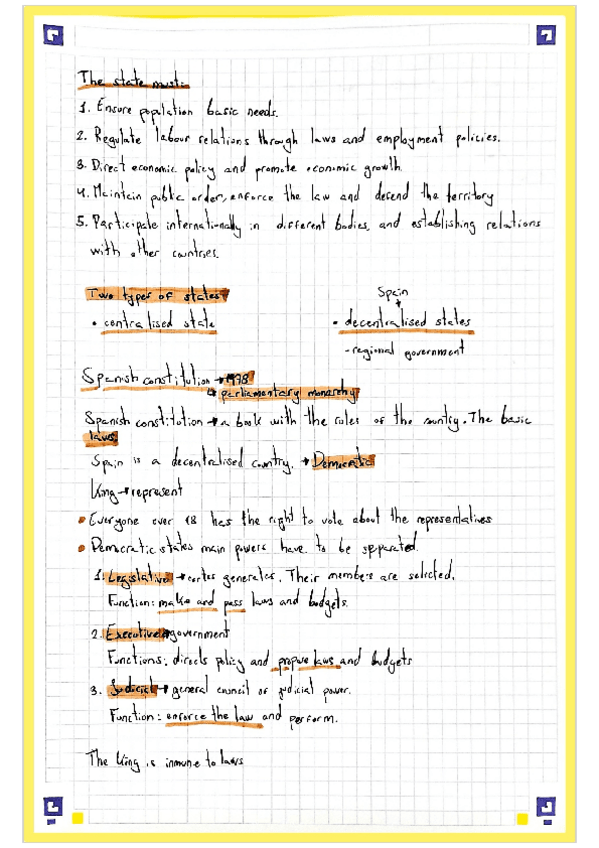 The state must:
1. Ensure population basic needs.
2. Regulate labour relations through laws and employment policies.
3. Direct economic policy and promote economic growth.
4. Maintain public order, enforce the law and defend the territory
5. Participate internationally in different bodies, and establishing relations
with other countries.
Two types of states
Spain
• centralised state • decentralised states
- regional government
Spanish constitution → 1978
↳ parliamentary monarchy
Spanish constitution → a book with the rules of the country. The basic
laws.
Spain is a decentralised country. → Democratic
King → represent
• Everyone over 18 has the right to vote about the representatives
• Democratic states main powers have to be separated.
1. Legislative → cortes generales. Their members are selected.
Function: make and pass laws and budgets.
2. Executive → government
Functions: directs policy and propose laws and budgets
3. Judicial → general council of judicial power.
Function: enforce the law and perform.
The King is inmune to laws